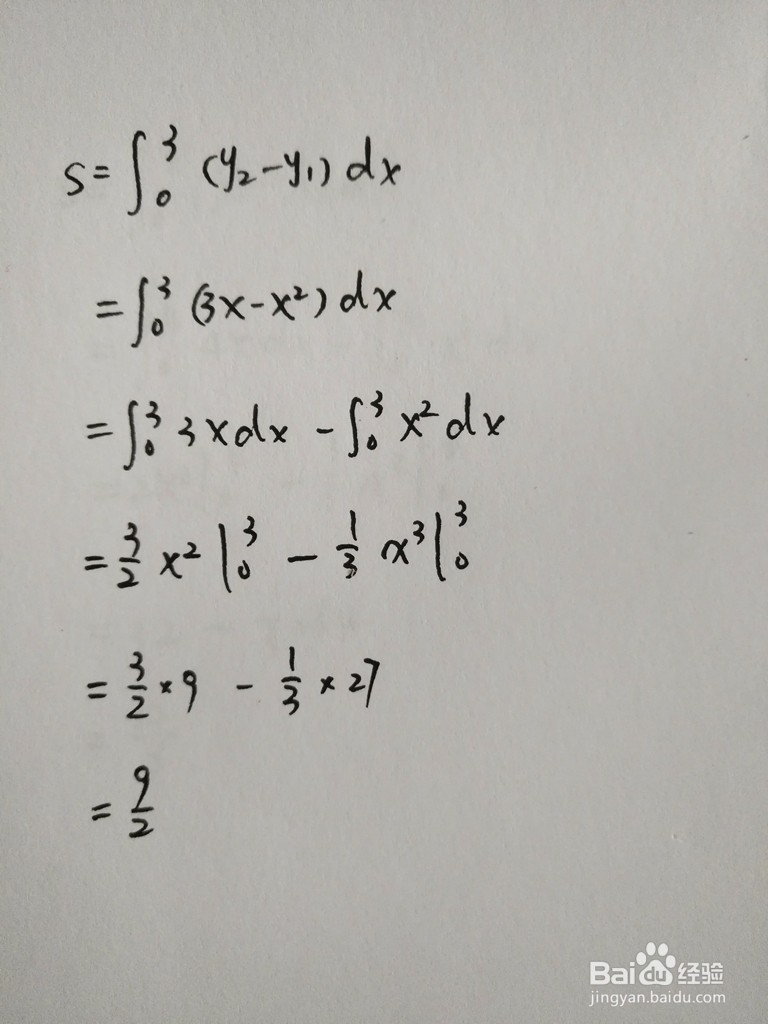 S = ∫₀³ (y₂ - y₁) dx
= ∫₀³ (3x - x²) dx
= ∫₀³ 3x dx - ∫₀³ x² dx
= 3/2 x² |₀³ - 1/3 x³ |₀³
= 3/2 × 9 - 1/3 × 27
= 9/2
Baidu 经验
jingyan.baidu.com